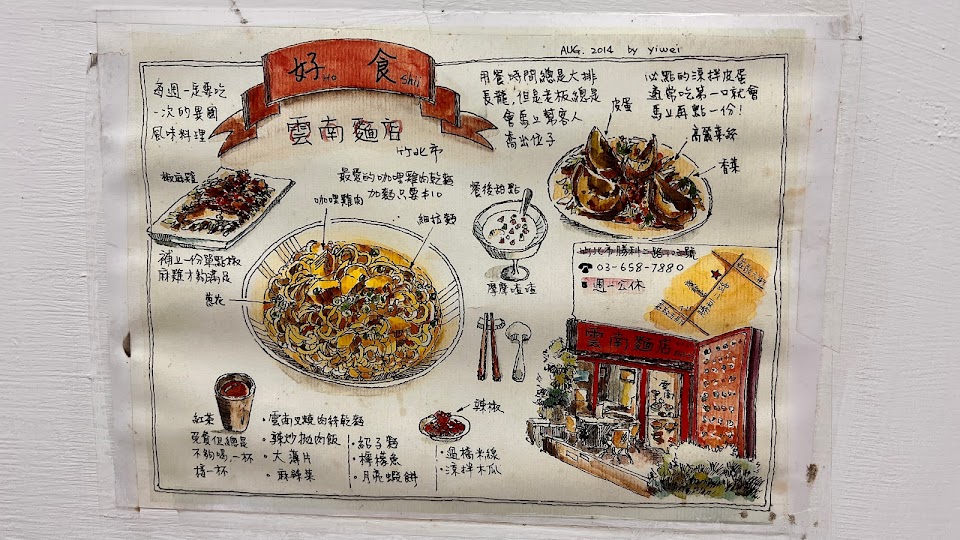 AUG. 2014 by yiwei
好 食
HO Shii
雲南麵店
竹北市
每週一定要吃
一次的異國
風味料理
用餐時間總是大排
長龍,但是老板總是
會馬上幫客人
喬出位子
必點的涼拌皮蛋
通常吃第一口就會
馬上再點一份!
皮蛋
高麗菜絲
香菜
椒麻雞
補上一份單點椒
麻雞才夠滿足
最愛的咖哩雞肉乾麵
加麵只要$10
咖哩雞肉
細拉麵
蔥花
餐後甜點
摩摩喳喳
03-658-7880
週一公休
勝利二路
雲南麵店
紅茶
免費但總是
不夠喝,一杯
接一杯
・雲南叉燒肉拌乾麵
・辣炒拋肉飯
・大薄片
・紹子麵
・檸檬魚
・月亮蝦餅
辣椒
・過橋米線
・涼拌木瓜